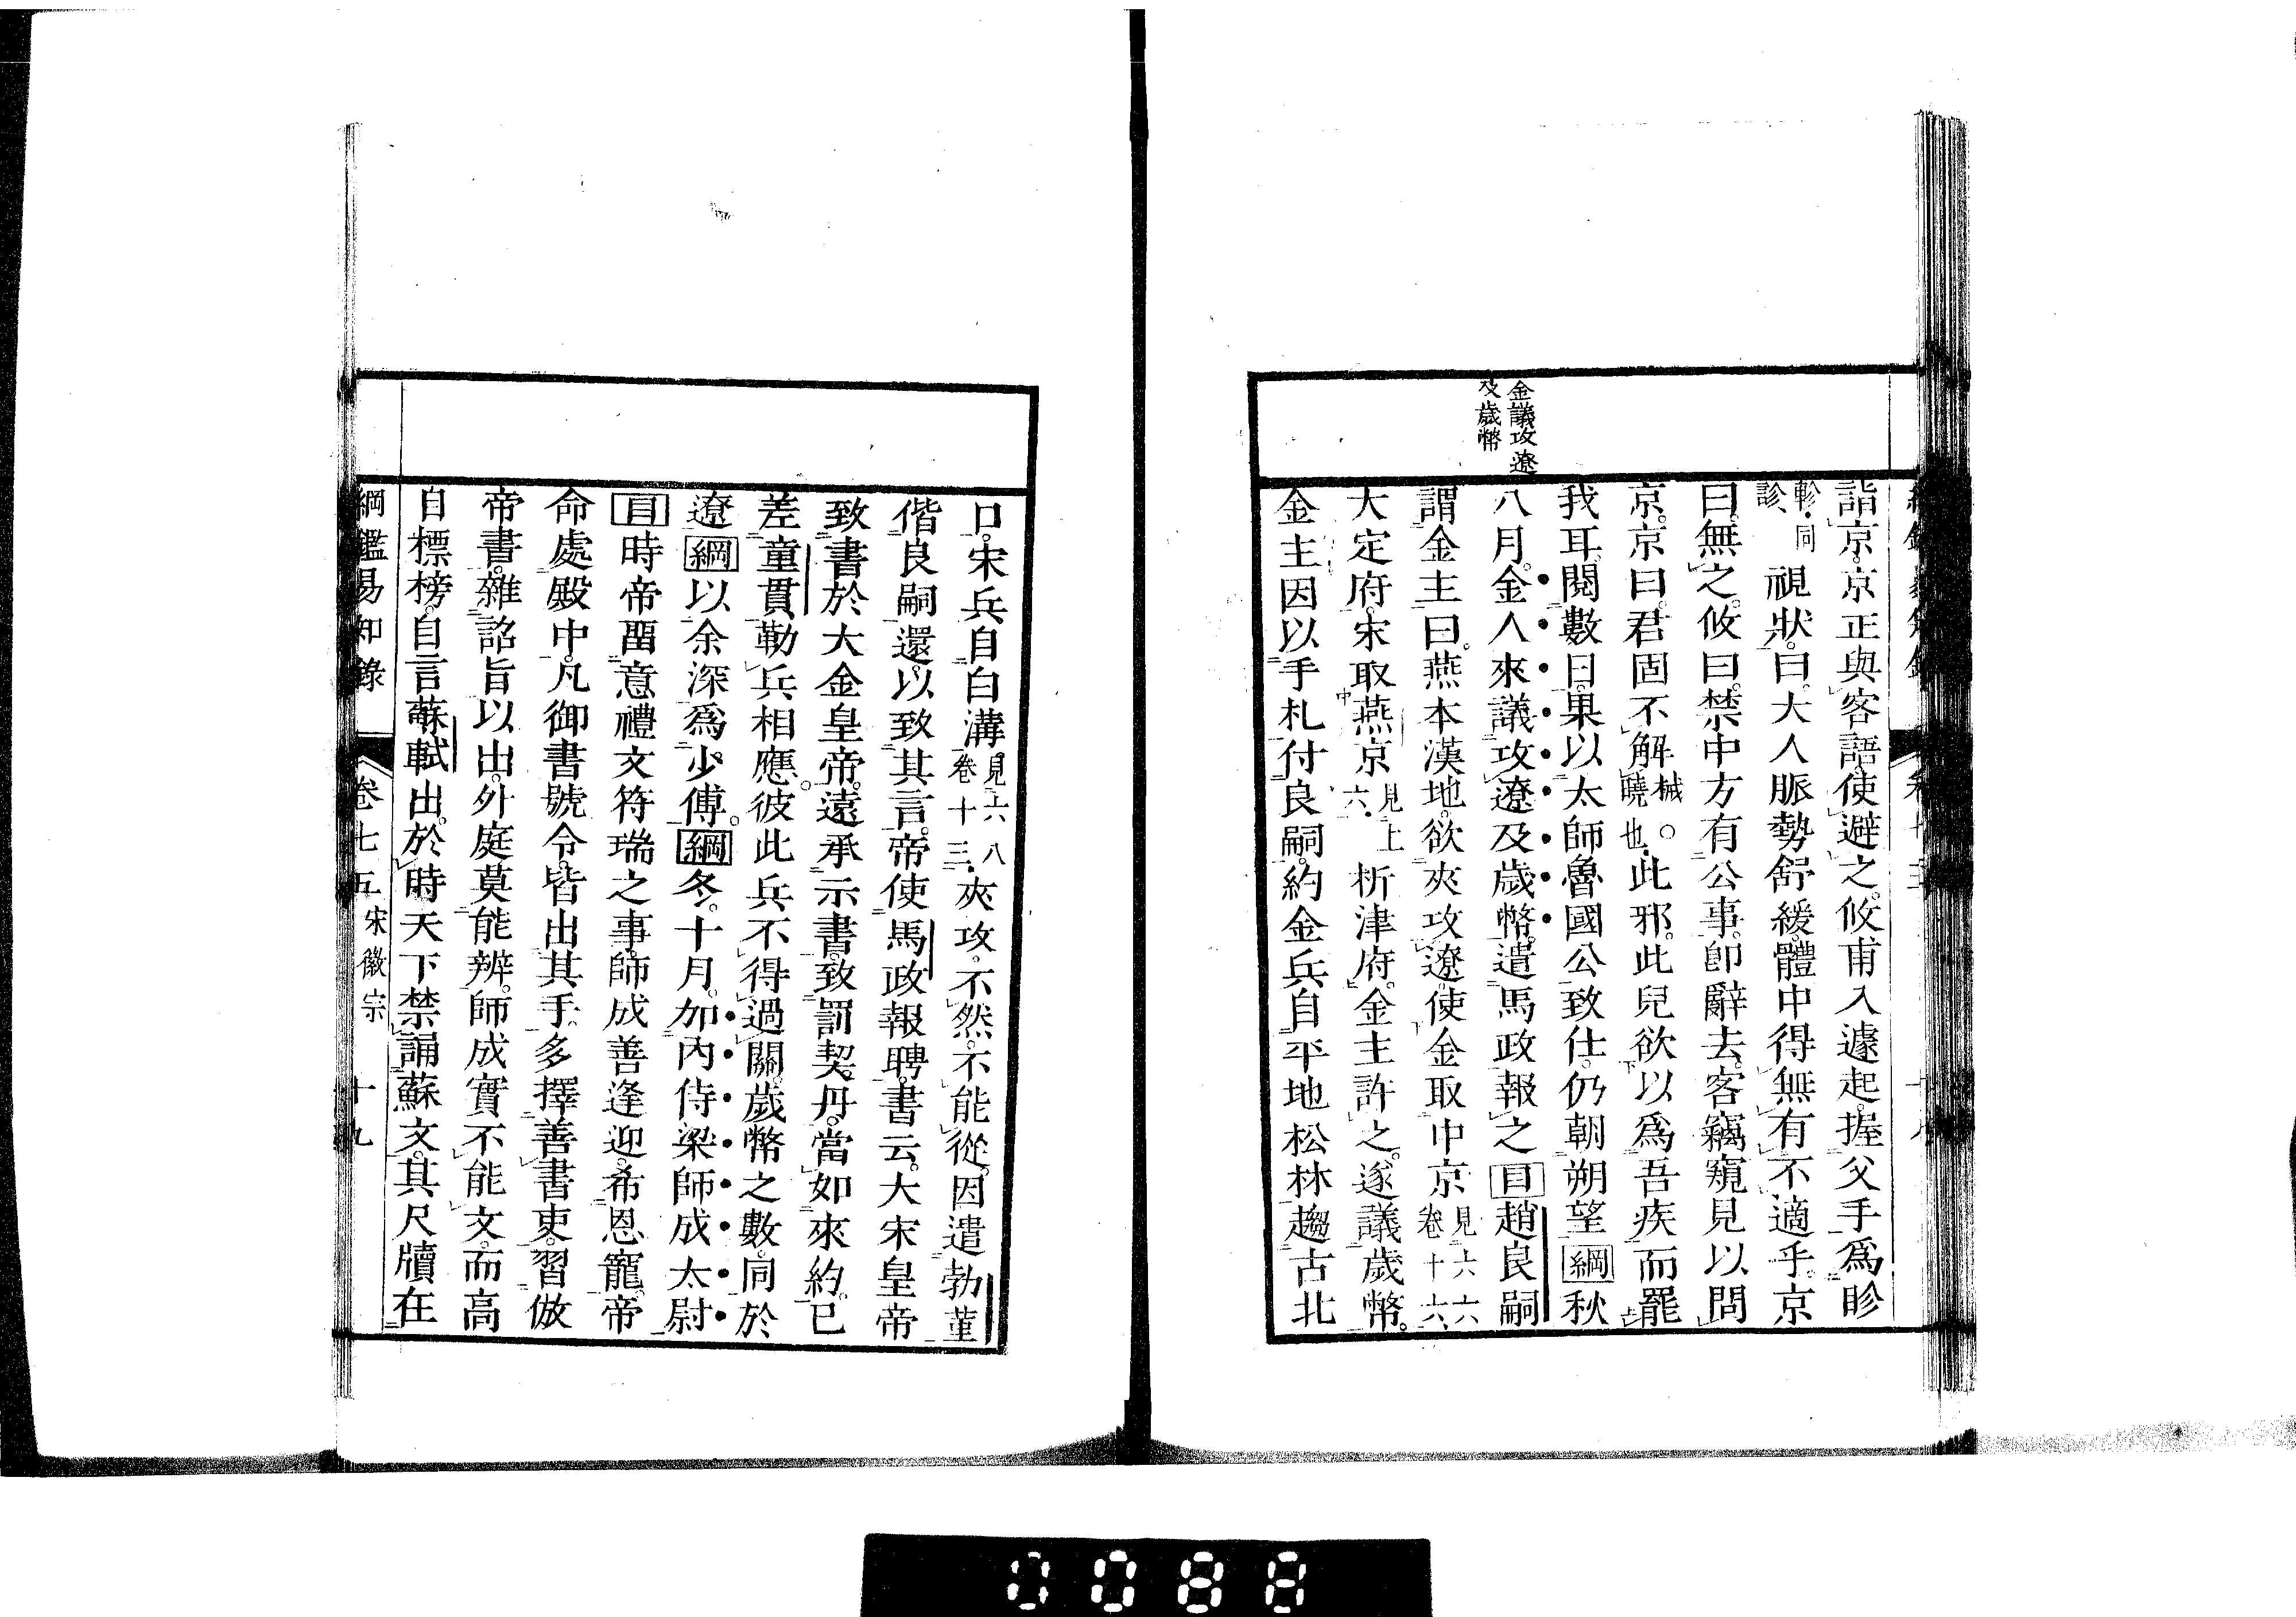 金議攻遼
及歲幣
詣京。京正與客語。使避之。攸甫入。遽起。握父手為眕
軫。同診。視狀。曰。大人脈勢舒緩。體中得無有不適乎。京
曰。無之。攸曰。禁中方有公事。卽辭去。客竊窺見以問
京。京曰。君固不解械。○曉也。此邪。此兒欲以為吾疾而罷
我耳。閱數日。果以太師魯國公致仕。仍朝朔望綱秋
八月。金人來議攻遼及歲幣。遣馬政報之目趙良嗣
謂金主曰。燕本漢地。欲夾攻遼。使金取中京見六六卷十六。
大定府。宋取燕京見上六。析津府。金主許之。遂議歲幣。
金主因以手札付良嗣。約金兵自平地松林趨古北
口。宋兵自白溝見六八卷十三。夾攻。不然。不能從。因遣勃菫
偕良嗣還。以致其言。帝使馬政報聘。書云。大宋皇帝
致書於大金皇帝。遠承示書。致罰契丹。當如來約。已
差童貫勒兵相應。彼此兵不得過關。歲幣之數。同於
遼綱以余深爲少傅。綱冬。十月。加內侍梁師成太尉
目時帝畱意禮文符瑞之事。師成善逢迎。希恩寵。帝
命處殿中。凡御書號令。皆出其手。多擇善書吏。習倣
帝書。雜詔旨以出。外庭莫能辨。師成實不能文。而高
自標榜。自言蘇軾出。於時天下禁誦蘇文。其尺牘在
綱鑑易知錄 卷七五 宋徽宗 十九
0088